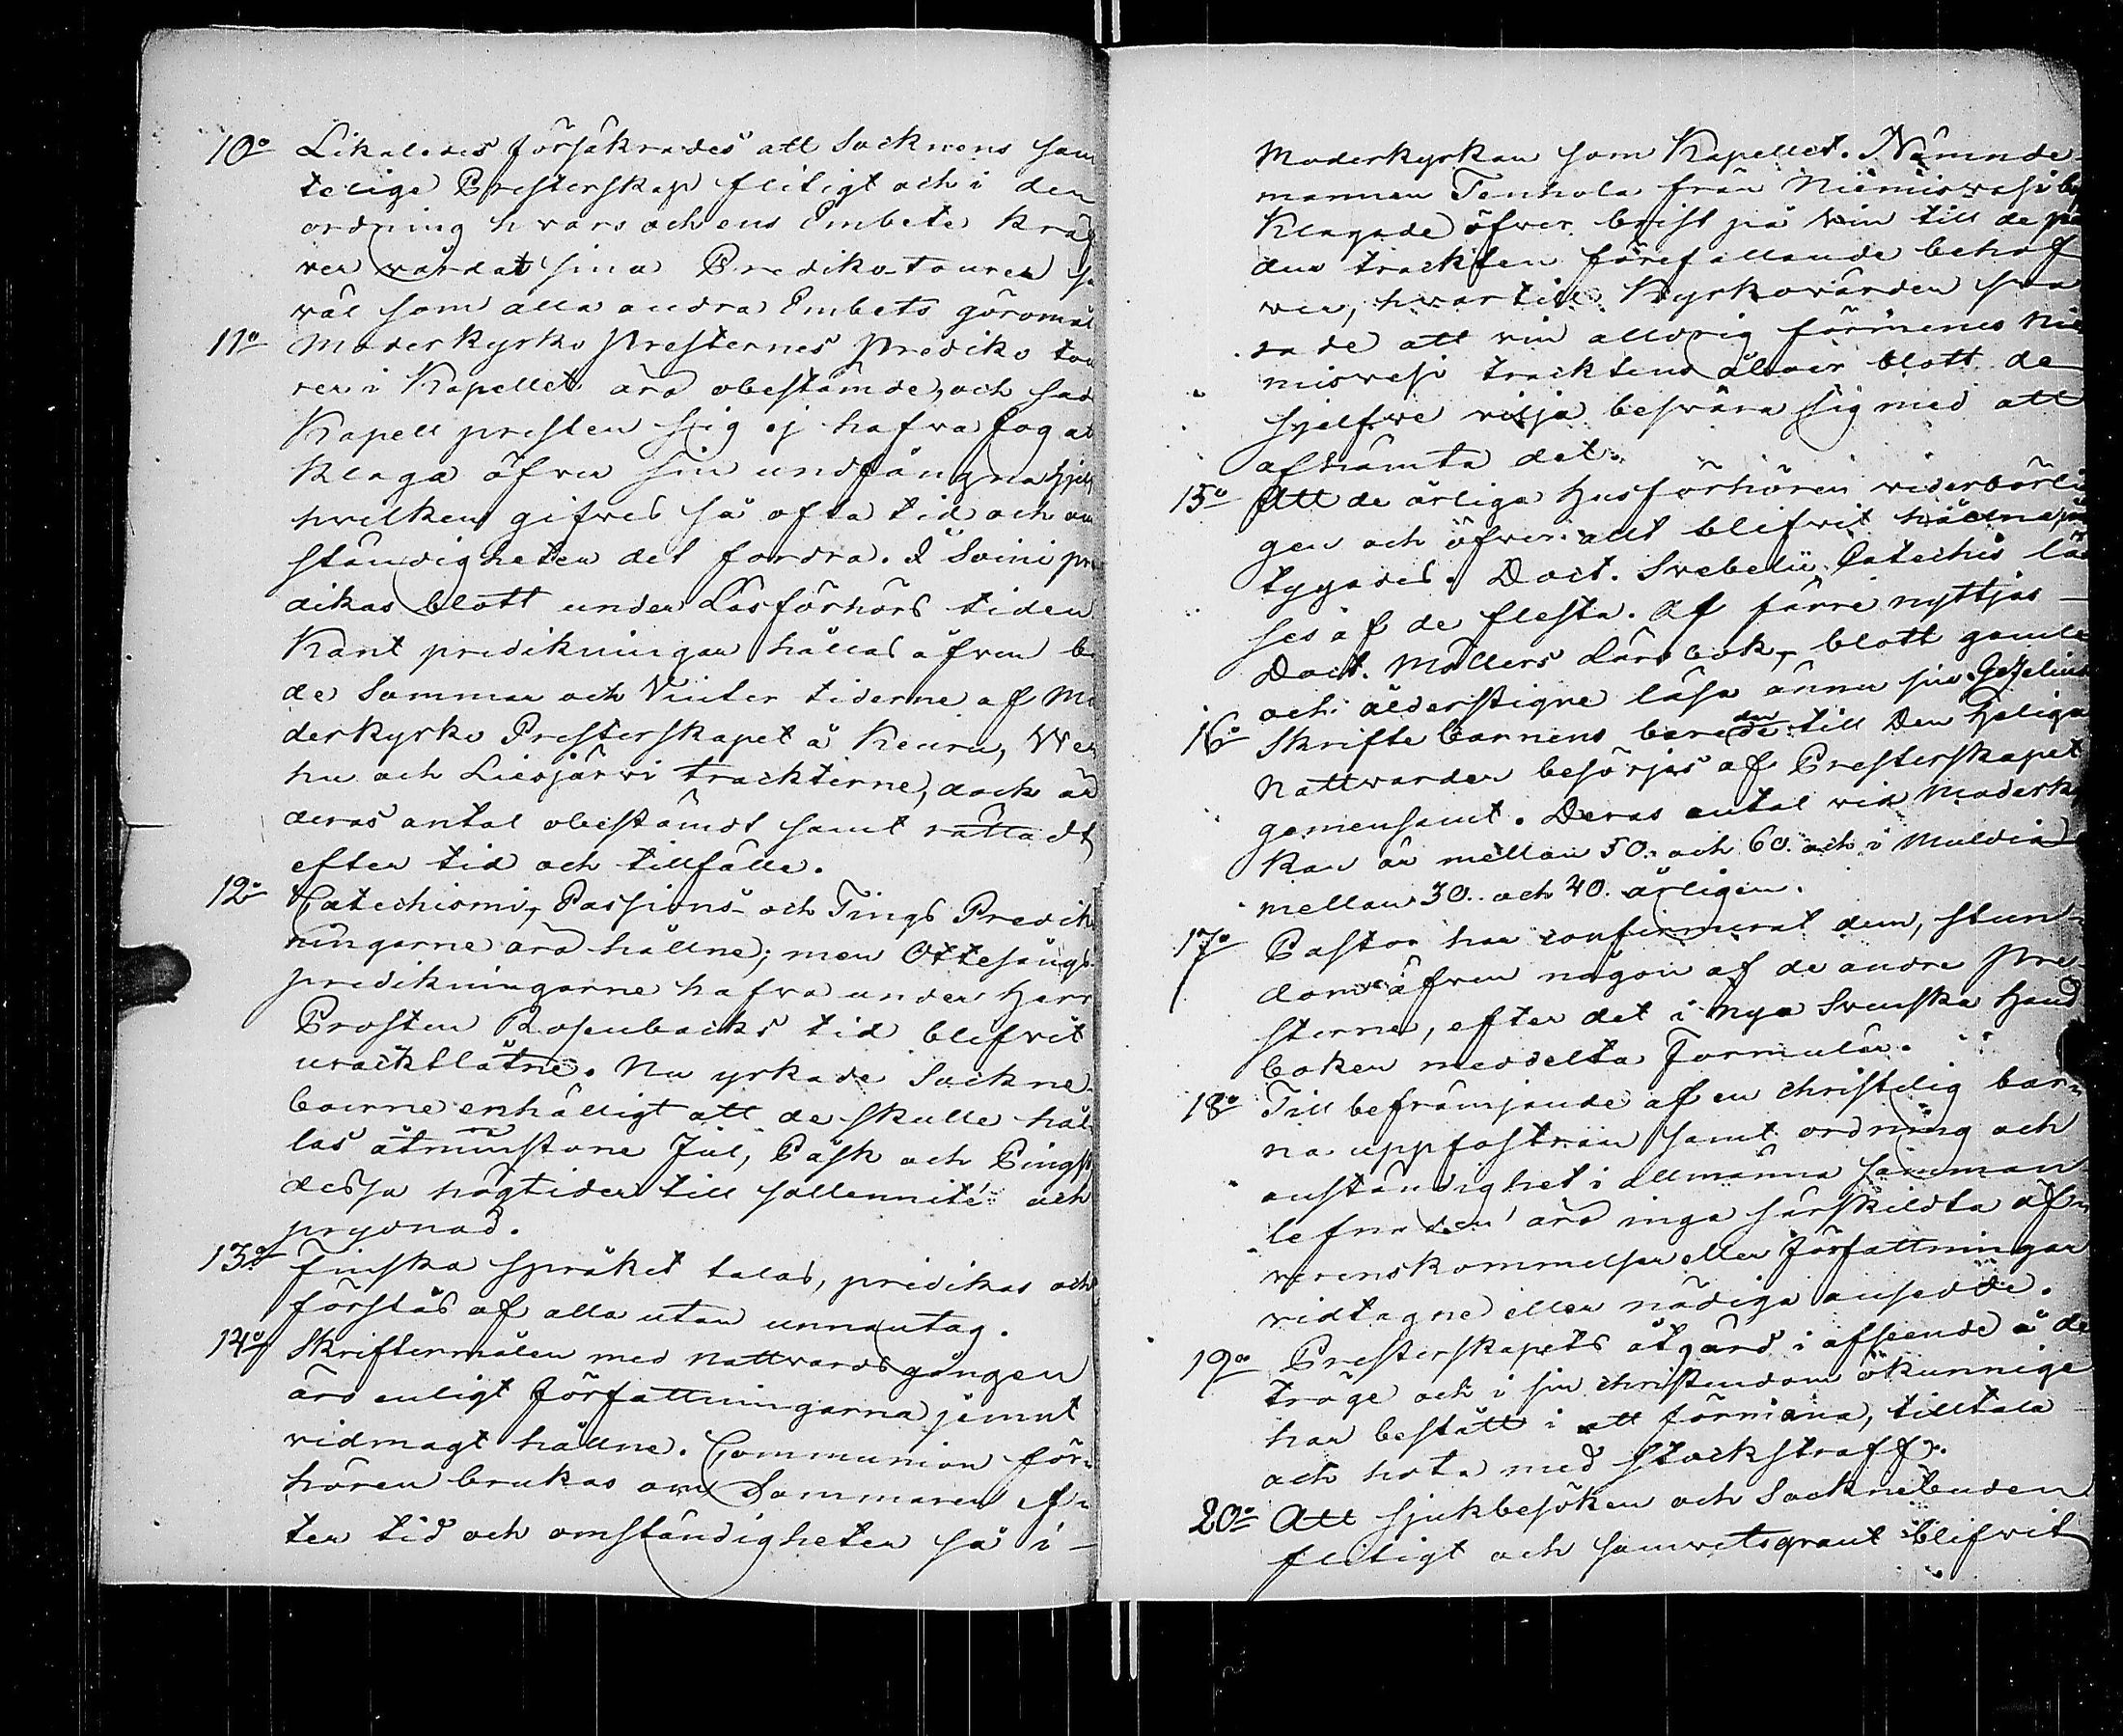 10o Likaledes försäkrades att Socknens sam
telige Presterskap flitigt och i den
ordning hvars och ens Embete kräf
ver vårdat sina Prediko-tourer så
väl som alla andra Embets göromål
11o Moderkyrko Presternes Prediko tou
rer i Kapellet äro obestämde, och sade
Kapell presten sig ej hafva fog at
klaga öfver sin undfångna hjelp
hvilken gifves så ofta tid och om
ständigheter det fordra. I Soini pre
dikas blott under Läsförhörs tiden.
Kant predikningar hållas äfven bå
de Sommar och Vinter tiderne af Mo
derkyrko Presterskapet å Keuru, Weh
hu och Liesjärvi trackterne, dock är
deras antal obestämdt samt rättadt
efter tid och tillfälle.
12o Catechismi, Passions- och Tings Predik
ningarne äro hållne; men Ottesångs
predikningarne hafva under Herr
Prosten Rosenbacks tid blifvit
uracktlåtne. Nu yrkade Sockne-
boerne enhälligt att de skulle hål
las åtminstone Jul, Påsk och Pingst
dessa högtider till sollennité och
prydnad.
13o Finska Språket talas, predikas och
förstås af alla utan unnantag.
14o Skriftermålen med nattvardsgången
äro enligt Författningarna jemnt
vidmagt hållne. Communion för-
hören brukas om Sommaren ef-
ter tid och omständigheter så i
Moderkyrkan som Kapellet. Nämnde-
mannen Tenhola från Niemisvesi by
klagade öfver brist på vin till de på
den trackten förefallande behof
ver, hvartill Kyrkovärden sva
rade att vin alldrig förmenes Nie
misvesi tracktens åboer blott de
sjelfve vilja besvära sig med att
afhämta det.
15o Att de årliga Husförhören vederbörli
gen och öfver allt blifvit
tygades. Doct. Svebelii Catechis lä
ses af de flesta. Af färre nyttjas
Doct. Möllers Lärobok, blott gamle
och ålderstigne läsa ännu sin Gezelius
16o Skrifte barnens bereden till Den Heliga
Nattvarden besörjes af Presterskapet
gemensamt. Deras antal vid Moderkyr
kan är mellan 50. och 60. och i Multia
mellan 30. och 40. årligen.
17o Pastor har confirmerat dem, stun-
dom äfven någon af de andre Pre-
sterne, efter det i nya Svenska Hand
boken meddelta Formulär.
18o Till befrämjande af en christelig bar-
na uppfostran samt ordning och
anständighet i allmänna samman
lefnaden äro inga särskildta öf-
verenskommelser eller författningar
vidtagne eller nödiga ansedde.
19o Presterskapets åtgärd i afseende å de
tröge och i sin christendom okunnige
har bestått i att förmana, tilltala
och hota med stockstraff.
20o Att sjukbesöken och Socknebuden
flitigt och samvetsgrant blifvit